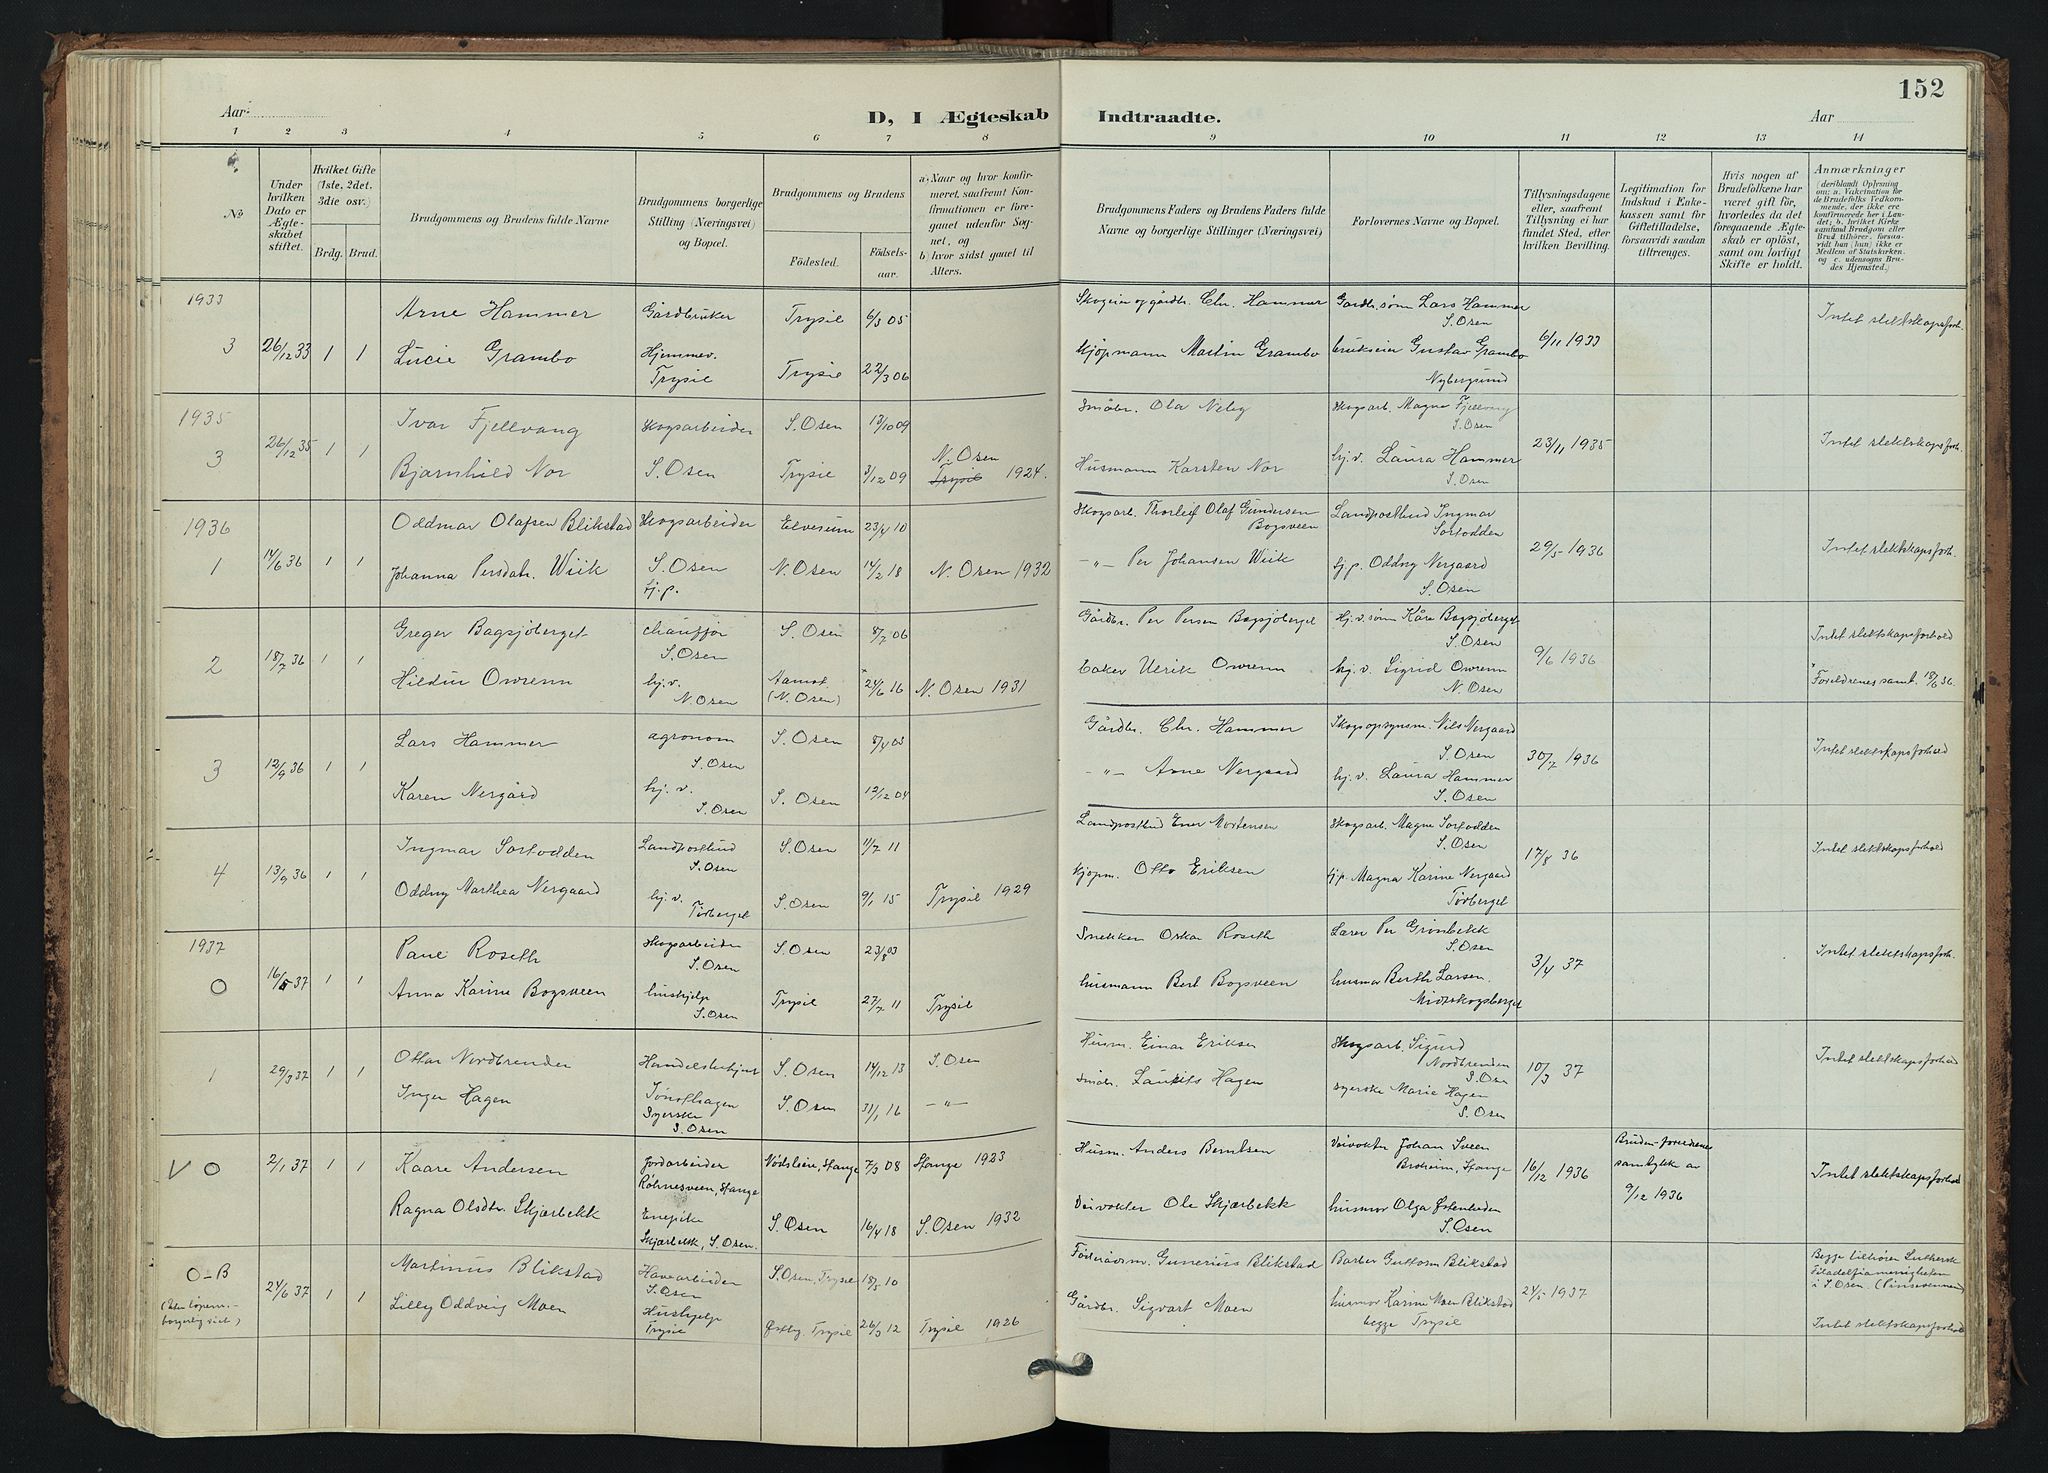 152
Aar
D, I Ægteskab Indtraadte.
Aar
1 2 3 4 5 6 7 8 9 10 11 12 13 14
No
Under hvilken Dato er Ægteskabet stiftet.
Hvilket Gifte (1ste, 2det, 3die osv.)
Brdg. Brud.
Brudgommens og Brudens fulde Navne
Brudgommens borgerlige Stilling (Næringsvei) og Bopæl.
Brudgommens og Brudens
Födested.
Födselsaar.
a) Naar og hvor konfirmeret, saafremt Konfirmationen er foregaaet udenfor Sognet, og
b) hvor sidst gaaet til Alters.
Brudgommens Faders og Brudens Faders fulde Navne og borgerlige Stillinger (Næringsvei)
Forlovernes Navne og Bopæl.
Tillysningsdagene eller, saafremt Tillysning ei har fundet Sted, efter hvilken Bevilling.
Legitimation for Indskud i Enkekassen samt for Giftetilladelse, forsaavidt saadan tiltrænges.
Hvis nogen af Brudefolkene har været gift för, hvorledes da det foregaaende Ægteskab er oplöst, samt om lovligt Skifte er holdt.
Anmærkninger
(deriblandt Oplysning om: a. Vakcination for de Brudefolks Vedkommende, der ikke ere konfirmerede her i Landet; b. hvilket Kirkesamfund Brudgom eller Brud tilhörer, forsaavidt han (hun) ikke er Medlem af Statskirken, og c. udensogns Brudes Hjemsted.)
1933
3 26/12 33 1 1
Arne Hammer Gårdbruker Trysil 6/3 05
Lucie Grambo Hjemmev. Trysil Trysil 22/3 06
Skogeier og gårdbr. Chr. Hammer
Kjøpmann Martin Grambo
Gardbr. sønn Lars Hammer S. Osen
brukseier Gustav Grambo Nybergsund
6/11 1933
Intet slektskapsforh.
1935
3 26/12 35 1 1
Ivar Fjellvang Skogsarbeider S. Osen 13/10 09
Bjarnhild Nor S. Osen Trysil 3/12 09 N. Osen Trysil 1924.
Småbr. Ola Neby
Husmann Karsten Nor
Skogsarb. Magne Fjellvang S. Osen
hj.v. Laura Hammer S. Osen
23/11 1935
Intet slektskapsforh.
1936
1 14/6 36 1 1
Oddmar Olafsen Blikstad Skogsarbeider S. Osen Elverum 23/4 10
Johanna Persdatr. Wiik tj.p. N. Osen 14/2 18 N. Osen 1932
Skogsarb. Thorleif Olaf Gundersen Bogsveen
-"- Per Johansen Wiik
Landpostbud Ingmar Sortodden
tj.p. Oddny Nergaard S. Osen
29/5 1936
Intet slektskapsforh.
2 18/7 36 1 1
Greger Bagsjøberget chauffør S. Osen S. Osen 8/7 06
Hildur Owrenn hj.v. N. Osen Aamot (N. Osen) 24/6 16 N. Osen 1931
Gårdbr. Per Persen Bagsjøberget
baker Ulrik Owrenn
Hj.v. sønn Kåre Bagsjøberget S. Osen
hj.v. Sigrid Owrenn N. Osen
9/6 1936
Intet slektskapsforhold
Foreldrenes samt. 18/6 36.
3 12/9 36 1 1
Lars Hammer agronom S. Osen S. Osen 8/4 03
Karen Nergård hj.v. S. Osen S. Osen 12/12 04
Gårdbr. Chr. Hammer
-"- Arne Nergaard
Skogopsynsm. Nils Nergaard S. Osen
hj.v. Laura Hammer S. Osen
30/7 1936
Intet slektskapsforhold
4 13/9 36 1 1
Ingmar Sortodden Landpostbud S. Osen S. Osen 11/7 11
Oddny Marthea Nergaard hj.v. Tørberget S. Osen 9/1 15 Trysil 1929
Landpostbud Ener Mortensen
Kjøpm. Otto Eriksen
Skogsarb. Magne Sortodden S. Osen
tj.p. Magna Karine Nergaard Tørberget
17/8 36
Intet slektskapsforhold
1937
0 16/5 37 1 1
Pane Roseth Skogsarbeider S. Osen S. Osen 23/8 03
Anna Karine Bogsveen hushjelp S. Osen Trysil 27/7 11 Trysil
Snekker Oskar Roseth
husmann Bert Bogsveen
Lærer Per Grønbekk S. Osen
husmor Berth Larsen.
3/4 37
Intet slektskapsforh.
1 29/3 37 1 1
Ottar Nordbrenden S. Osen 14/12 13 S. Osen
Inger Hagen Syerske S. Osen S. Osen 31/1 16 -"-
Husm. Einar Eriksen
Småbr. Laurits Hagen
Skogsarb. Sigurd Nordbrenden S. Osen
syerske Marie Hagen S. Osen
10/3 37
Intet slektskapsforhold
V 0 2/1 37 1 1
Kaare Andersen Jordarbeider Røhnesveen, Stange Stange 7/3 08 Stange 1923
Ragna Olsdtr. Skjærbekk Enepike Skjærbekk, S. Osen. S. Osen 16/4 18 S. Osen 1932
Husm. Anders Berntsen
Veivokter Ole Skjærbekk
Veivokter Johan Sveen Broheim, Stange
husmor Olga Østenheden S. Osen
16/12 1936
Brudens foreldrenes samtykke av 9/12 1936
Intet slektskapsforhold
0-B 24/6 37 1 1
borgerlig viet)
Martinus Blikstad Havearbeider S. Osen S. Osen, Trysil 18/5 10
Lilly Oddvig Moen Hushjelp Trysil Østby, Trysil 26/3 12 Trysil 1926
Føderådsm. Gunerius Blikstad
Gårdbr. Sigvart Moen
Barber Guttorm Blikstad
husmor Karine Moen Blikstad
begge Trysil
24/5 1937
Begge tilhører Luthersk Filadelfiamenigheten i S. Osen (Pinsevenner)
Intet slektskapsforhold